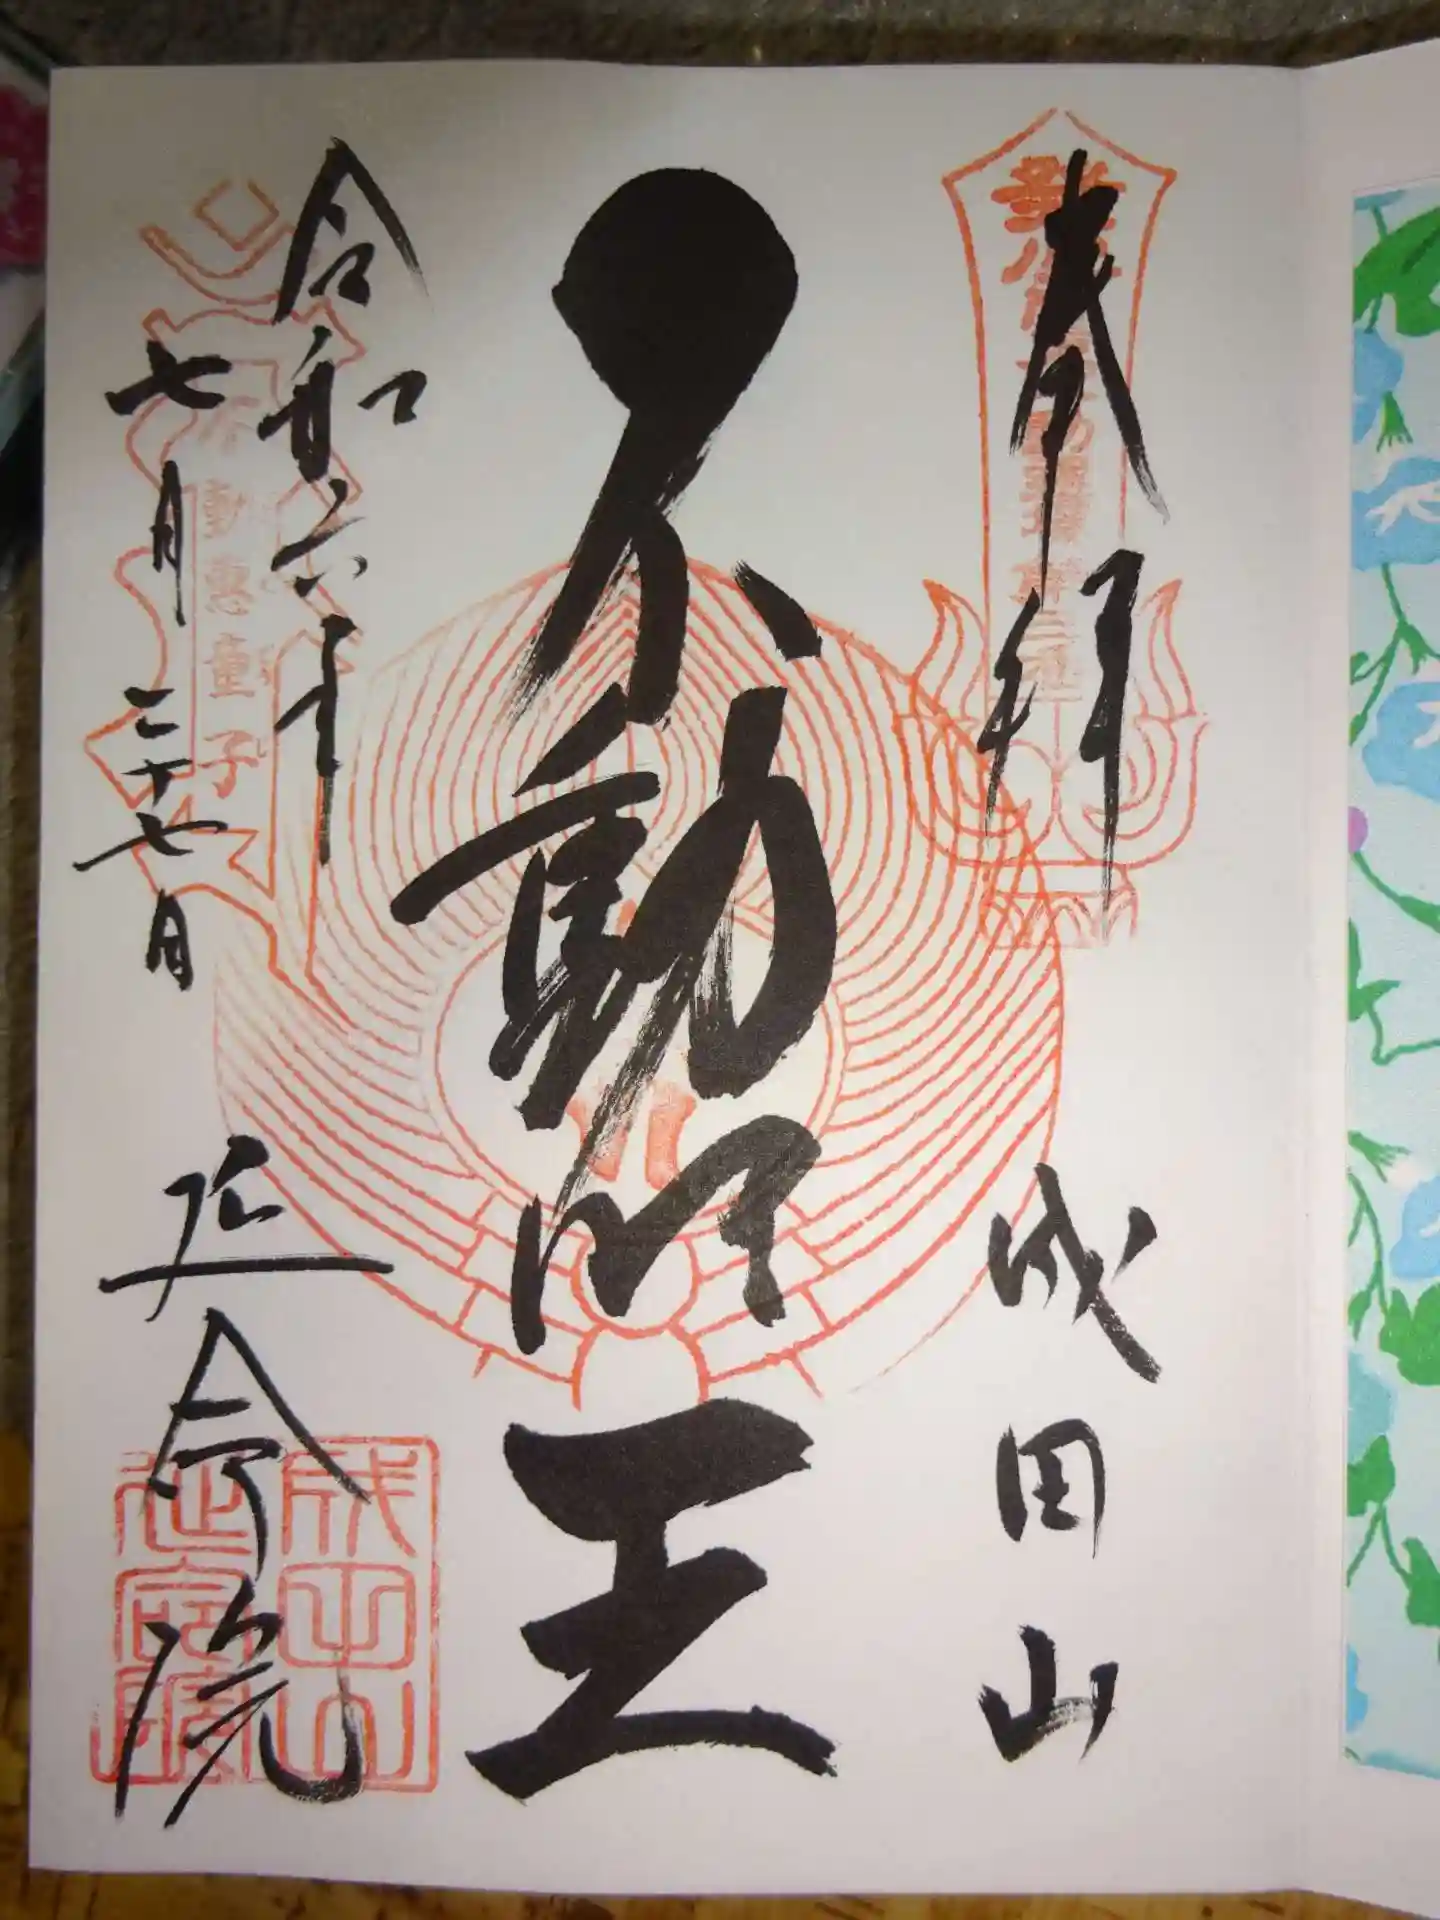 奉拝
成田山
不動明王
令和六年
七月二十七日
延命院
動
恵童子
成田山
延命院